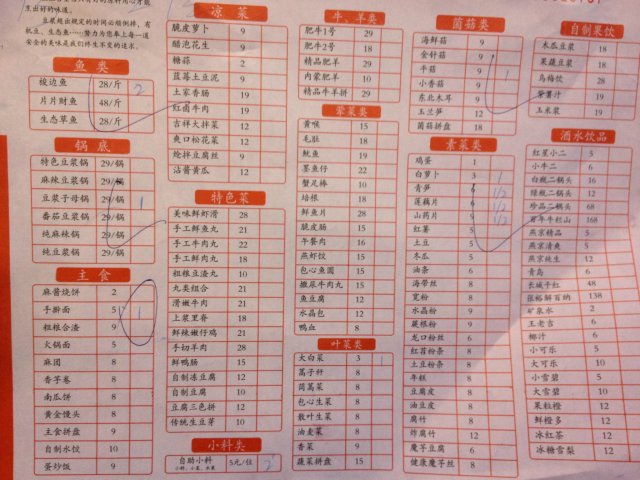 主出好的味道。
豆浆超出规定的时间必须倒掉，有
机豆，生态鱼……努力为您奉上每一道
安全的美味是我们终生不变的追求。
鱼 类
梭边鱼 28/斤 2
片片财鱼 48/斤
生态草鱼 28/斤
锅 底
特色豆浆锅 29/锅
麻辣豆浆锅 29/锅
豆浆子母锅 29/锅 1
番茄豆浆锅 29/锅
纯麻辣锅 29/锅
纯豆浆锅 29/锅
主 食
麻酱烧饼 2
手擀面 5 1
粗粮合渣 9
火锅面 5
麻团 8
香芋卷 8
南瓜饼 8
黄金馒头 8
主食拼盘 9
自制水饺 10
蛋炒饭 9
凉 菜
脆皮萝卜 9
醋泡花生 9
糖蒜 2
蓝莓土豆泥 9
土家香肠 19
红卤牛肉 19
吉祥大拌菜 12
爽口松花菜 12
烩拌豆腐丝 9
沾酱黄瓜 12
特色菜
美味鲜虾滑 28
手工鲜鱼丸 21
手工牛肉丸 22
手工鲜肉丸 18
粗粮豆渣丸 10
九类组合 21
滑嫩牛肉 21
上浆里脊 18
鲜辣嫩仔鸡 21
手切羊肉 28
鲜鸭肠 15
自制冻豆腐 12
自制豆腐 10
豆腐三色拼 12
传统生豆芽 10
小料类
自助小料 5元/位 2
小料、小菜、水果
牛、羊类
肥牛1号 29
肥牛2号 18
精品肥羊 29
内蒙肥羊 10
精品牛羊拼 29
荤菜类
黄喉 15
毛肚 18
鱿鱼 19
墨鱼仔 22
蟹足棒 10
培根 18
鲜鱼片 28
脆皮肠 15
午餐肉 16
燕虾饺 15
包心鱼圆 15
撒尿牛肉丸 15
鱼豆腐 12
水晶包 12
鸭血 8
叶菜类
大白菜 3 1
蒿子秆 8
茼蒿菜 8
包心生菜 8
散叶生菜 8
油麦菜 8
香菜 9
蔬菜拼盘 15
菌菇类
海鲜菇 9
金针菇 9
平菇 9
小香菇 9 1
东北木耳 9
玉兰笋 12
菌菇拼盘 18
素菜类
鸡蛋 1
白萝卜 3 1
青笋 9 1/2
莲藕片 6 1/2
山药片 9 1/2
红薯 5
土豆 5
冬瓜 5
油条 6
海带丝 8
宽粉 8
水晶粉 9
蕨根粉 9
龙口粉丝 8
红苕粉条 8
土豆粉条 8
年糕 8
豆腐皮 8
油豆皮 8
腐竹 8
炸腐竹 12
魔芋豆腐 6
健康魔芋丝 8
自制果饮
木瓜豆浆 18
果蔬豆浆 18
乌梅饮 28
紫薯汁 19
玉米浆 19
酒水饮品
红星小二 5
小牛二 6
白瓶二锅头 16
绿瓶二锅头 12
珍品二锅头 68
百年牛栏山 168
燕京精品 5
燕京清爽 5
燕京纯生 12
青岛 6
长城干红 48
张裕解百纳 138
矿泉水 2
王老吉 6
椰汁 6
小可乐 5
大可乐 10
小雪碧 5
大雪碧 10
果粒橙 12
鲜橙多 12
冰红茶 12
冰糖雪梨 12